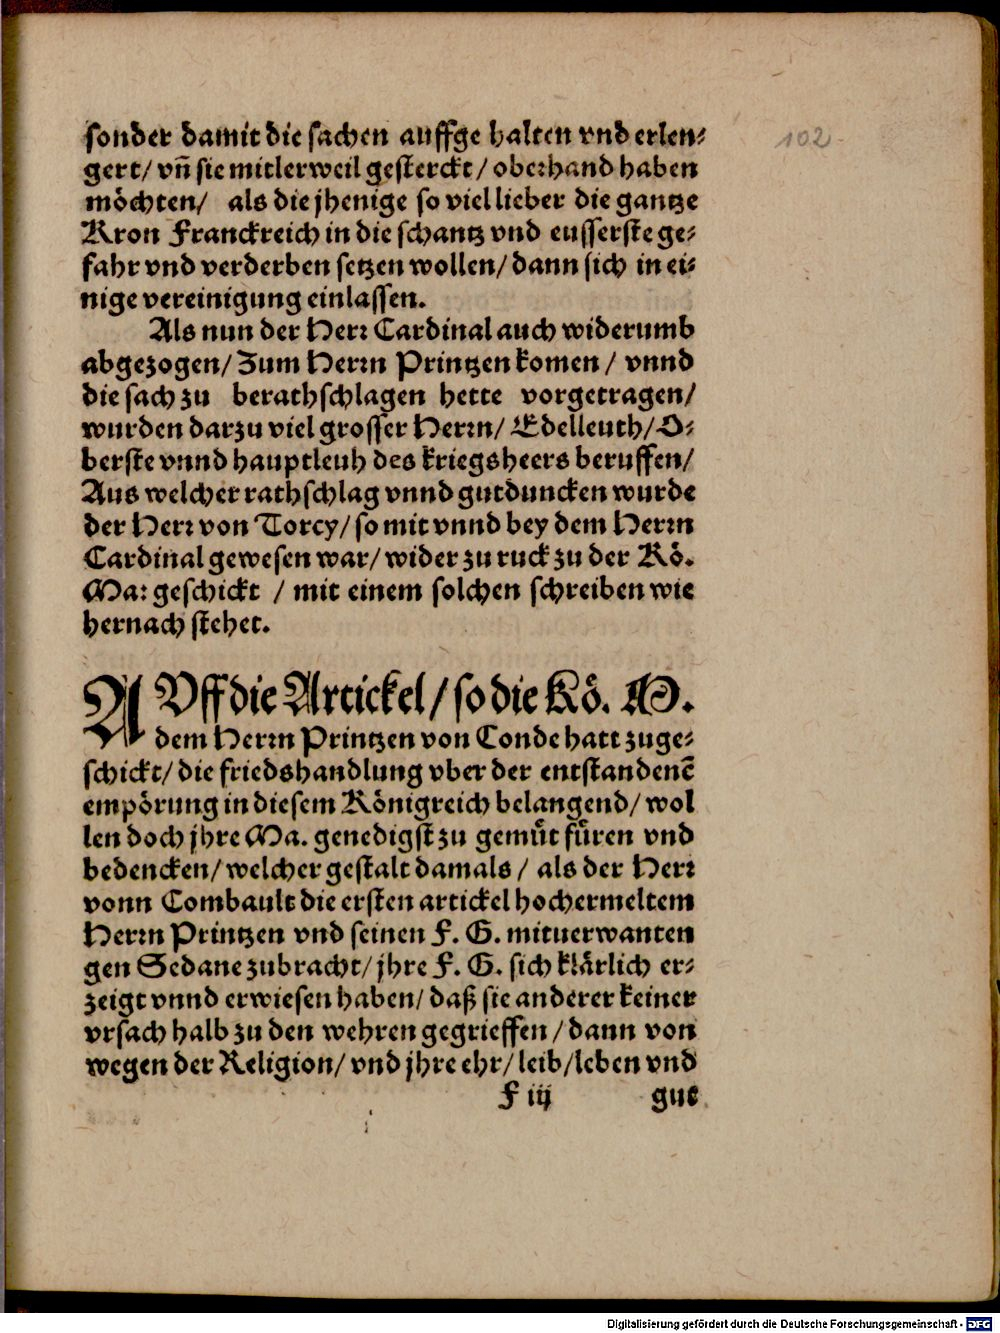 sonder damit die sachen auffge halten vnd erlen⸗
gert/ vn̄ sie mitlerweil gesterckt/ oberhand haben
möchten/ als die jhenige so viel lieber die gantze
Kron Franckreich in die schantz vnd eusserste ge⸗
fahr vnd verderben setzen wollen/ dann sich in ei⸗
nige vereinigung einlassen.
Als nun der Herr Cardinal auch widerumb
abgezogen/ Zum Herrn Printzen komen/ vnnd
die sach zu berathschlagen hette vorgetragen/
wurden darzu viel grosser Herrn/ Edelleuth/ O⸗
berste vnnd hauptleuh des kriegsheers beruffen/
Aus welcher rathschlag vnnd gutduncken wurde
der Herr von Torcy/ so mit vnnd bey dem Herrn
Cardinal gewesen war/ wider zu ruck zu der Kö.
Ma: geschickt / mit einem solchen schreiben wie
hernach stehet.
AVff die Artickel/ so die Kö. M.
dem Herrn Printzen von Conde hatt zuge⸗
schickt/ die friedshandlung vber der entstandenē
empörung in diesem Königreich belangend/ wol
len doch jhre Ma. genedigst zu gemuͤt fuͤren vnd
bedencken/ welcher gestalt damals/ als der Herr
vonn Combault die ersten artickel hochermeltem
Herrn Printzen vnd seinen F. G. mituerwanten
gen Sedane zubracht/ jhre F. G. sich klärlich er⸗
zeigt vnnd erwiesen haben/ daß sie anderer keiner
vrsach halb zu den wehren gegrieffen/ dann von
wegen der Religion/ vnd jhre ehr/ leib/ leben vnd
F iij gut
102
Digitalisierung gefördert durch die Deutsche Forschungsgemeinschaft - DFG